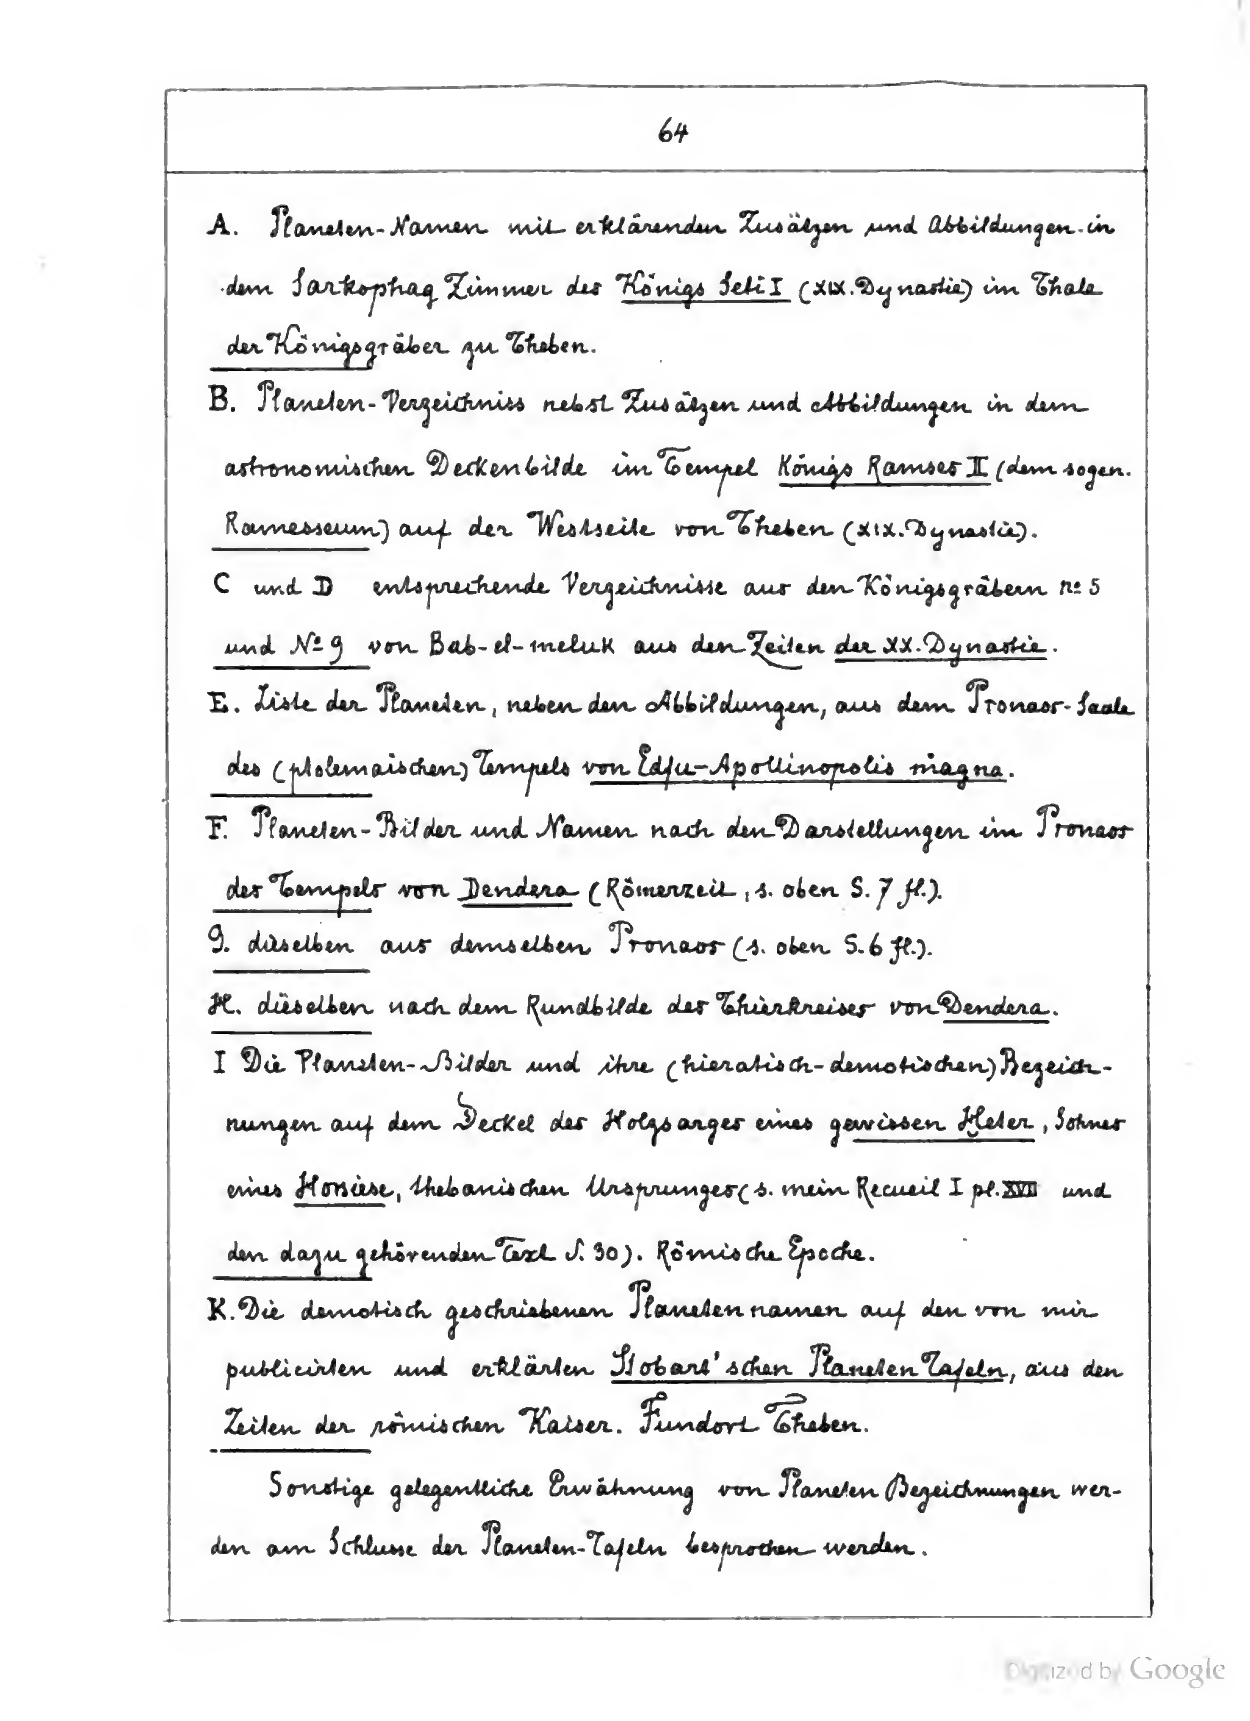 64
A. Planeten-Namen mit erklärenden Zusätzen und Abbildungen in
dem Sarkophag Zimmer des Königs Seti I (XIX. Dynastie) im Thale
der Königsgräber zu Theben.
B. Planeten-Verzeichniss nebst Zusätzen und Abbildungen in dem
astronomischen Deckenbilde im Tempel Königs Ramses II (dem sogen.
Ramesseum) auf der Westseite von Theben (XIX. Dynastie).
C und D entsprechende Verzeichnisse aus den Königsgräbern no 5
und No 9 von Bab-el-meluk aus den Zeiten der XX. Dynastie.
E. Liste der Planeten, neben den Abbildungen, aus dem Pronaos-Saale
des (ptolemaischen) Tempels von Edfu-Apollinopolis magna.
F. Planeten-Bilder und Namen nach den Darstellungen im Pronaos
des Tempels von Dendera (Römerzeit, s. oben S. 7 fl.).
G. dieselben aus demselben Pronaos (s. oben S. 6 fl.).
H. dieselben nach dem Rundbilde des Thierkreises von Dendera.
I Die Planeten-Bilder und ihre (hieratisch-demotischen) Bezeich-
nungen auf dem Deckel des Holzsarges eines gewissen Ḥeter, Sohnes
eines Horsiese, thebanischen Ursprunges (s. mein Recueil I pl. XVII und
den dazu gehörenden Text S. 30). Römische Epoche.
K. Die demotisch geschriebenen Planetennamen auf den von mir
publicirten und erklärten Stobart'schen Planeten Tafeln, aus den
Zeiten der römischen Kaiser. Fundort Theben.
Sonstige gelegentliche Erwähnung von Planeten Bezeichnungen wer-
den am Schlusse der Planeten-Tafeln besprochen werden.
Digitized by Google